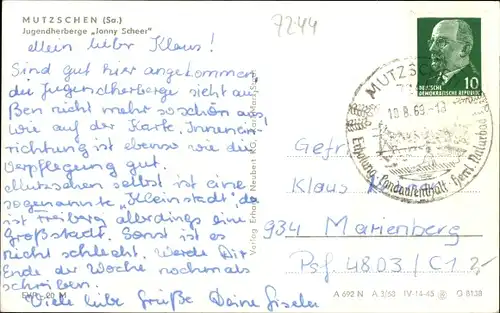 MUTZSCHEN (Sa.)
Jugendherberge „Jonny Scheer"
7244
Mein lieber Klaus!
Sind gut hier angekommen
die Jugendherberge sieht au-
ßen nicht mehr so schön aus,
wie auf der Karte. Innenein
richtung ist ebenso wie die
Verpflegung gut.
Mutzschen selbst ist eine
sogenannte „Kleinstadt" da
ist Freiberg allerdings eine
Großstadt. Sonst ist es
nicht schlecht. Werde Dir
Ende der Woche nochmals
schreiben.
Viele liebe Grüße Deine Gisela
EVP -,20 M
Verlag Erhard Neubert KG,
10
DEUTSCHE
DEMOKRATISCHE REPUBLIK
MUTZSCHEN
10.8.69-18
Erholung Landaufenthalt Herrl. Naturbad
Gefr.
Klaus
934 Marienberg
Psf. 4803/C1
A 692 N A 3/60 IV-14-45 G 8138